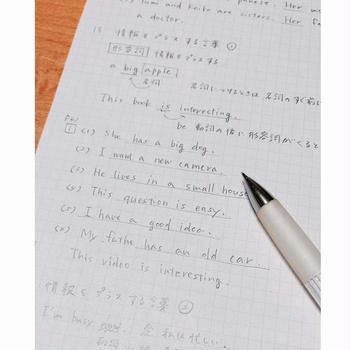 Yumi and Keiko are sisters. Her
a doctor.
13 情報をプラスする言葉 ①
形容詞 情報をプラスする
a big apple
名詞 名詞につけるときは名詞のすぐ前に
This book is interesting.
be 動詞の後に形容詞がくると
P41
1 (1) She has a big dog.
(2) I want a new camera.
(3) He lives in a small house
(4) This question is easy.
(5) I have a good idea.
(6) My fathe has an old car.
This video is interesting.
情報をプラスする言葉 ②
I'm busy 私は忙しい。